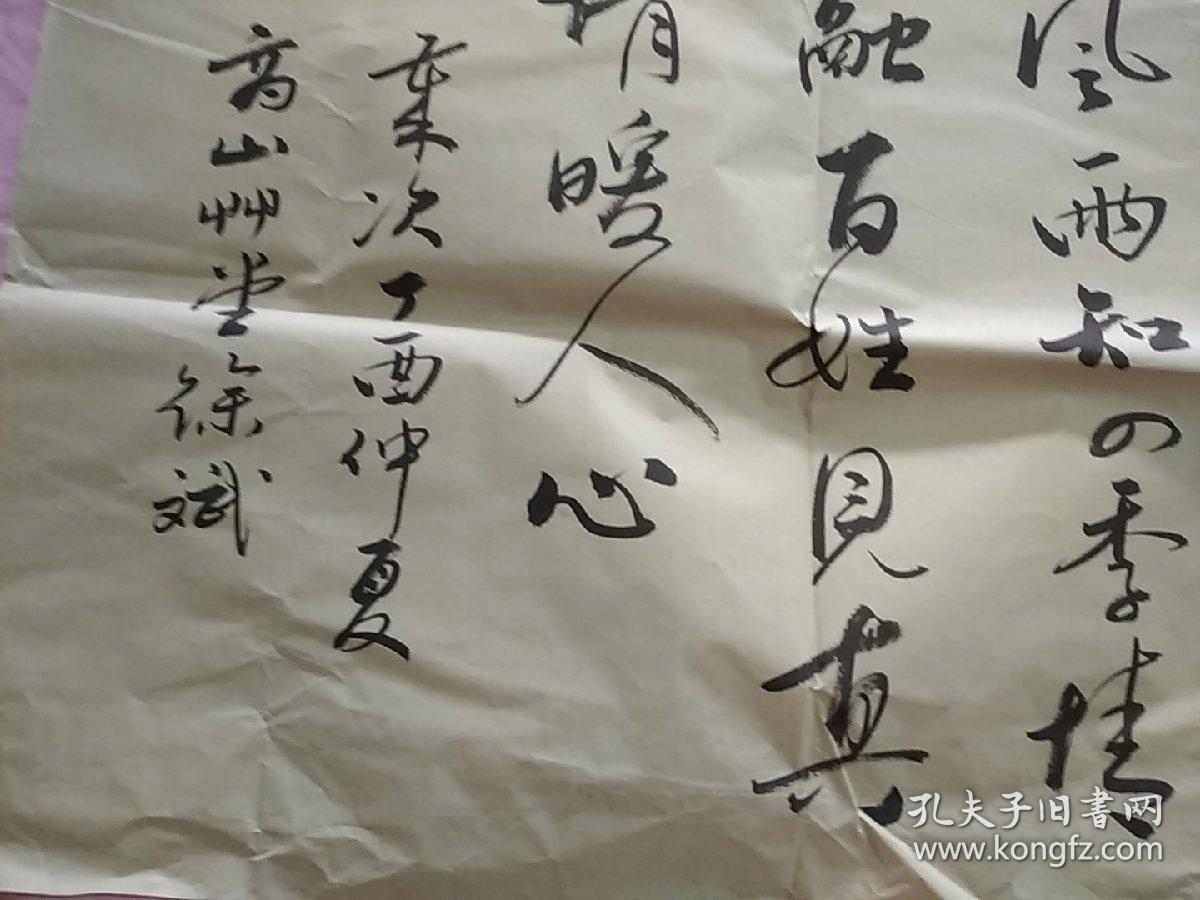 風雨知四季
融百姓見真
暖人心
丁酉仲夏
高山艸堂徐斌
孔夫子旧書网
www.kongfz.com